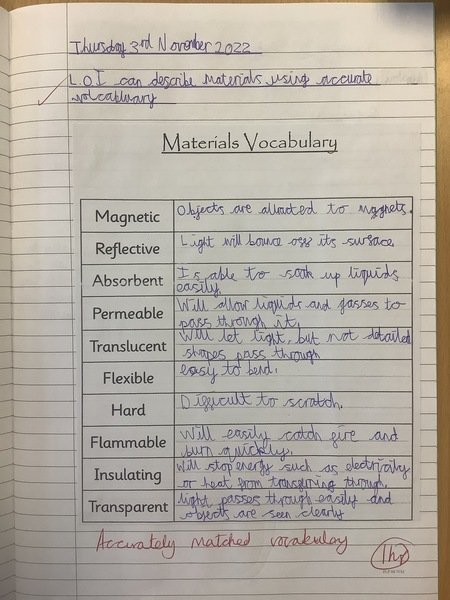 Thursday 3rd November 2022
L.O I can describe materials using accurate
volcabluary
Materials Vocabulary
Magnetic
Objects are attracted to magnets.
Reflective
Light will bounce off its surface.
Absorbent
Is able to soak up liquids
easily.
Permeable
Will allow liquids and gasses to
pass through it.
Translucent
Will let light, but not detailed
shapes pass through
Flexible
easy to bend.
Hard
Difficult to scratch.
Flammable
Will easily catch fire and
burn quickly.
Insulating
Will stop energy such as electricity
or heat from transfuring through.
Transparent
light passes through easily and
objects are seen clearly
Accurately matched vocabulary